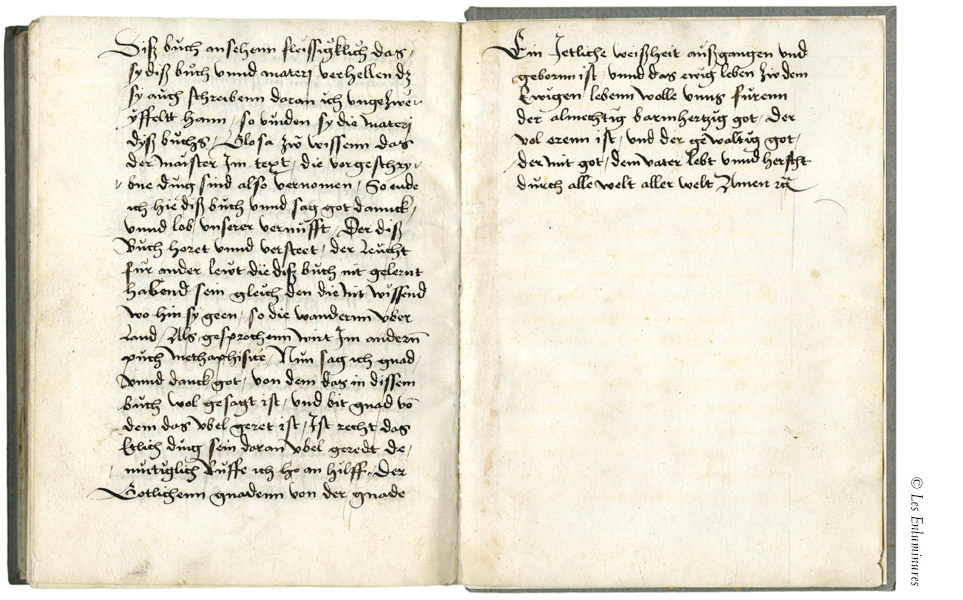 Disz buch ansehenn fleissigklich das /
sy disz buch vnnd materj verhellen dz
sy auch schreibenn daran ich vngezwe-
yffelt hann / so vinden sy die materj
dysz buchs / Glosa zů wissenn das
der maister Im text / die vorgeschry-
bne ding sind also vernomen / So ende
ich hie disz buch vnnd sag got dannck /
vnnd lob vnserer vernufft / Der disz
Buch horet vnnd versteet / der Leucht
für ander lewt die disz buch nit gelernt
habend sein gleich den die nit wissend
wo hin sy geen / so die wandernn vber
Land / Als gesprochenn wirt Im andern
puch methaphisice / Nun sag ich gnad
vnnd danck got / von dem das in dissem
buch wol gesagt ist / vnd bit gnad vō
dem das vbel geret ist / Ist recht das
Etlich ding sein daran vbel geredt de-
muttiglich Ruffe ich ho an hilff / Der
Gotlichenn gnadenn von der gnade
Ein Jetliche weiszheit auszgangen vnd
gebornn ist / vnnd das ewig leben zw dem
Ewigen lebenn wolle vnns fürenn
der almechtig barmhertzig got / der
vol erenn ist / vnd der gewaltig got /
der mit got / dem vater lebt vnnd herscht
durch alle welt aller welt Amen
© Les Enluminures